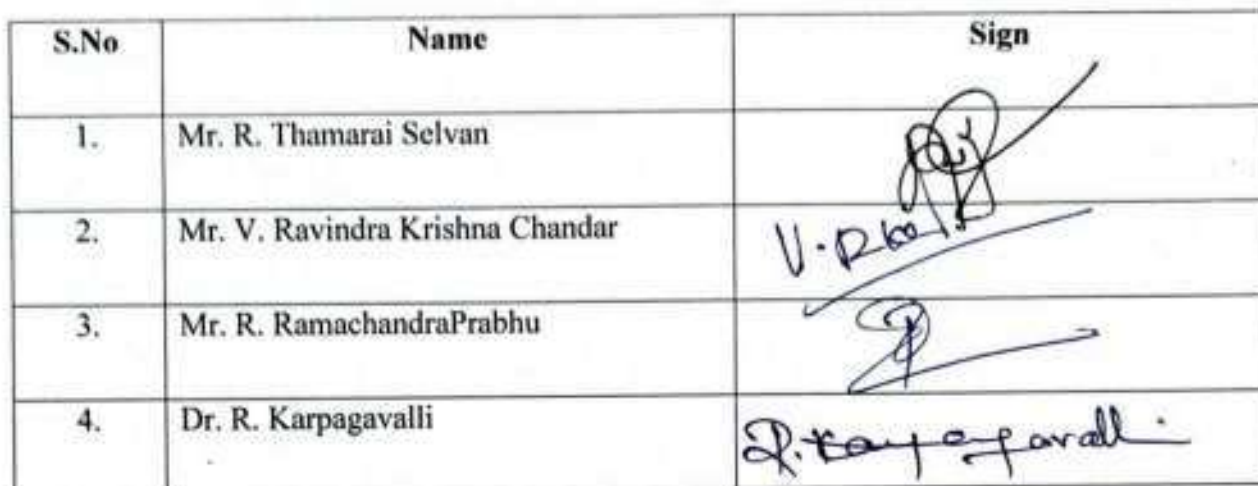 S.No Name Sign
1. Mr. R. Thamarai Selvan
2. Mr. V. Ravindra Krishna Chandar
3. Mr. R. RamachandraPrabhu
4. Dr. R. Karpagavalli R. Karpagavalli